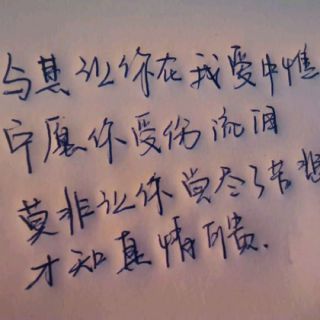 与其让你在我爱中憔
宁愿你受伤流泪
莫非让你尝尽了苦悲
才知真情可贵.